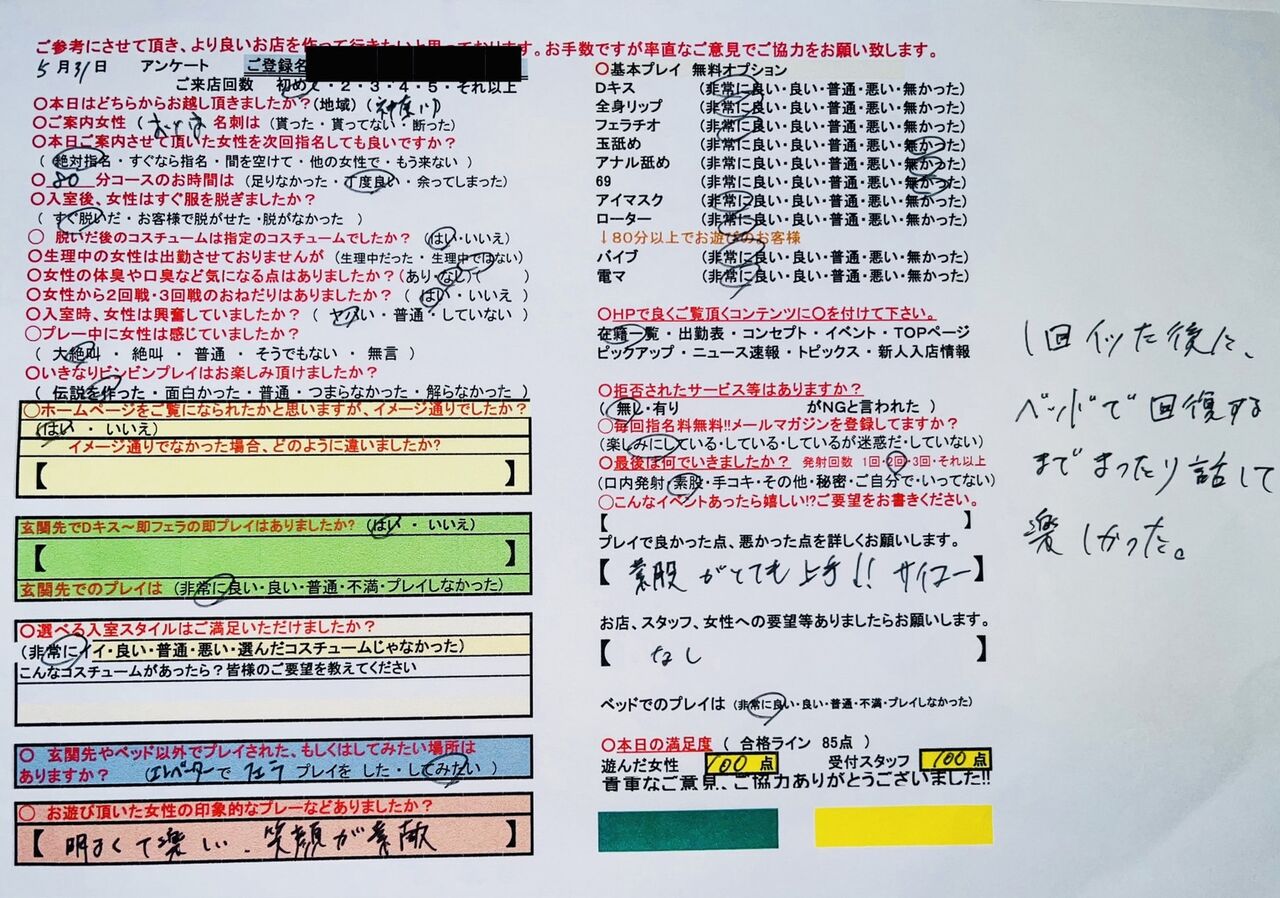 ご参考にさせて頂き、より良いお店を作って行きたいと思っております。お手数ですが率直なご意見でご協力をお願い致します。
5月31日 アンケート ご登録名
ご来店回数 初めて・2・3・4・5・それ以上
〇本日はどちらからお越し頂きましたか?(地域)(神奈川)
〇ご案内女性( 名刺は(貰った・貰ってない・断った)
〇本日ご案内させて頂いた女性を次回指名しても良いですか?
(絶対指名・すぐなら指名・間を空けて・他の女性で・もう来ない)
〇 80 分コースのお時間は(足りなかった・丁度良い・余ってしまった)
〇入室後、女性はすぐ服を脱ぎましたか?
(すぐ脱いだ・お客様で脱がせた・脱がなかった)
〇 脱いだ後のコスチュームは指定のコスチュームでしたか?(はい・いいえ)
〇生理中の女性は出勤させておりませんが(生理中だった・生理中ではない)
〇女性の体臭や口臭など気になる点はありましたか?(あり・なし)( )
〇女性から2回戦・3回戦のおねだりはありましたか?(はい・いいえ)
〇入室時、女性は興奮していましたか?(ヤバい・普通・していない)
〇プレー中に女性は感じていましたか?
(大絶叫・絶叫・普通・そうでもない・無言)
〇いきなりビンビンプレイはお楽しみ頂けましたか?
(伝説を作った・面白かった・普通・つまらなかった・解らなかった)
〇ホームページをご覧になられたかと思いますが、イメージ通りでしたか?
(はい・いいえ)
イメージ通りでなかった場合、どのように違いましたか?
【 】
玄関先でDキス〜即フェラの即プレイはありましたか?(はい・いいえ)
【 】
玄関先でのプレイは(非常に良い・良い・普通・不満・プレイしなかった)
〇選べる入室スタイルはご満足いただけましたか?
(非常にイイ・良い・普通・悪い・選んだコスチュームじゃなかった)
こんなコスチュームがあったら?皆様のご要望を教えてください
〇 玄関先やベッド以外でプレイされた、もしくはしてみたい場所は
ありますか?(エレベーターでフェラプレイをした・してみたい)
〇 お遊び頂いた女性の印象的なプレーなどありましたか?
【明るくて楽しい、笑顔が素敵
〇基本プレイ 無料オプション
Dキス (非常に良い・良い・普通・悪い・無かった)
全身リップ (非常に良い・良い・普通・悪い・無かった)
フェラチオ (非常に良い・良い・普通・悪い・無かった)
玉舐め (非常に良い・良い・普通・悪い・無かった)
アナル舐め (非常に良い・良い・普通・悪い・無かった)
69 (非常に良い・良い・普通・悪い・無かった)
アイマスク (非常に良い・良い・普通・悪い・無かった)
ローター (非常に良い・良い・普通・悪い・無かった)
↓80分以上でお遊びのお客様
バイブ (非常に良い・良い・普通・悪い・無かった)
電マ (非常に良い・良い・普通・悪い・無かった)
〇HPで良くご覧頂くコンテンツに〇を付けて下さい。
在籍一覧・出勤表・コンセプト・イベント・TOPページ
ピックアップ・ニュース速報・トピックス・新人入店情報
〇拒否されたサービス等はありますか?
(無し・有り がNGと言われた)
〇毎回指名料無料!!メールマガジンを登録してますか?
(楽しみにしている・している・しているが迷惑だ・していない)
〇最後は何でいきましたか? 発射回数 1回・2回・3回・それ以上
(口内発射・素股・手コキ・その他・秘密・ご自分で・いってない)
〇こんなイベントあったら嬉しい!?ご要望をお書きください。
【 】
プレイで良かった点、悪かった点を詳しくお願いします。
【素股がとても上手!!サイコー】
お店、スタッフ、女性への要望等ありましたらお願いします。
【なし】
ベッドでのプレイは(非常に良い・良い・普通・不満・プレイしなかった)
〇本日の満足度(合格ライン 85点)
遊んだ女性 100点 受付スタッフ 100点
貴重なご意見、ご協力ありがとうございました!!
1回イッた後に、
ベッドで回復する
までまったり話して
楽しかった。